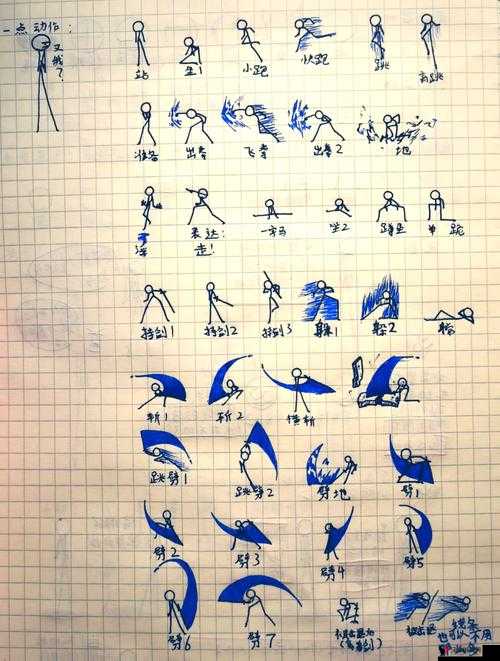 一点动作:
又饿了?
站 坐1 小跑 快跑 跳 高跳
准备 出拳 飞拳 出拳2 地
浮 表达: 一字马 坐2 蹲坐 单 跪
走!
持剑1 持剑2 持剑3 躲1 躲2 躺
斩1 斩2 横斩
跳劈1 跳劈2 劈地 劈1
劈2 劈3 劈4 劈5
劈6 劈7
线条
也可以不用